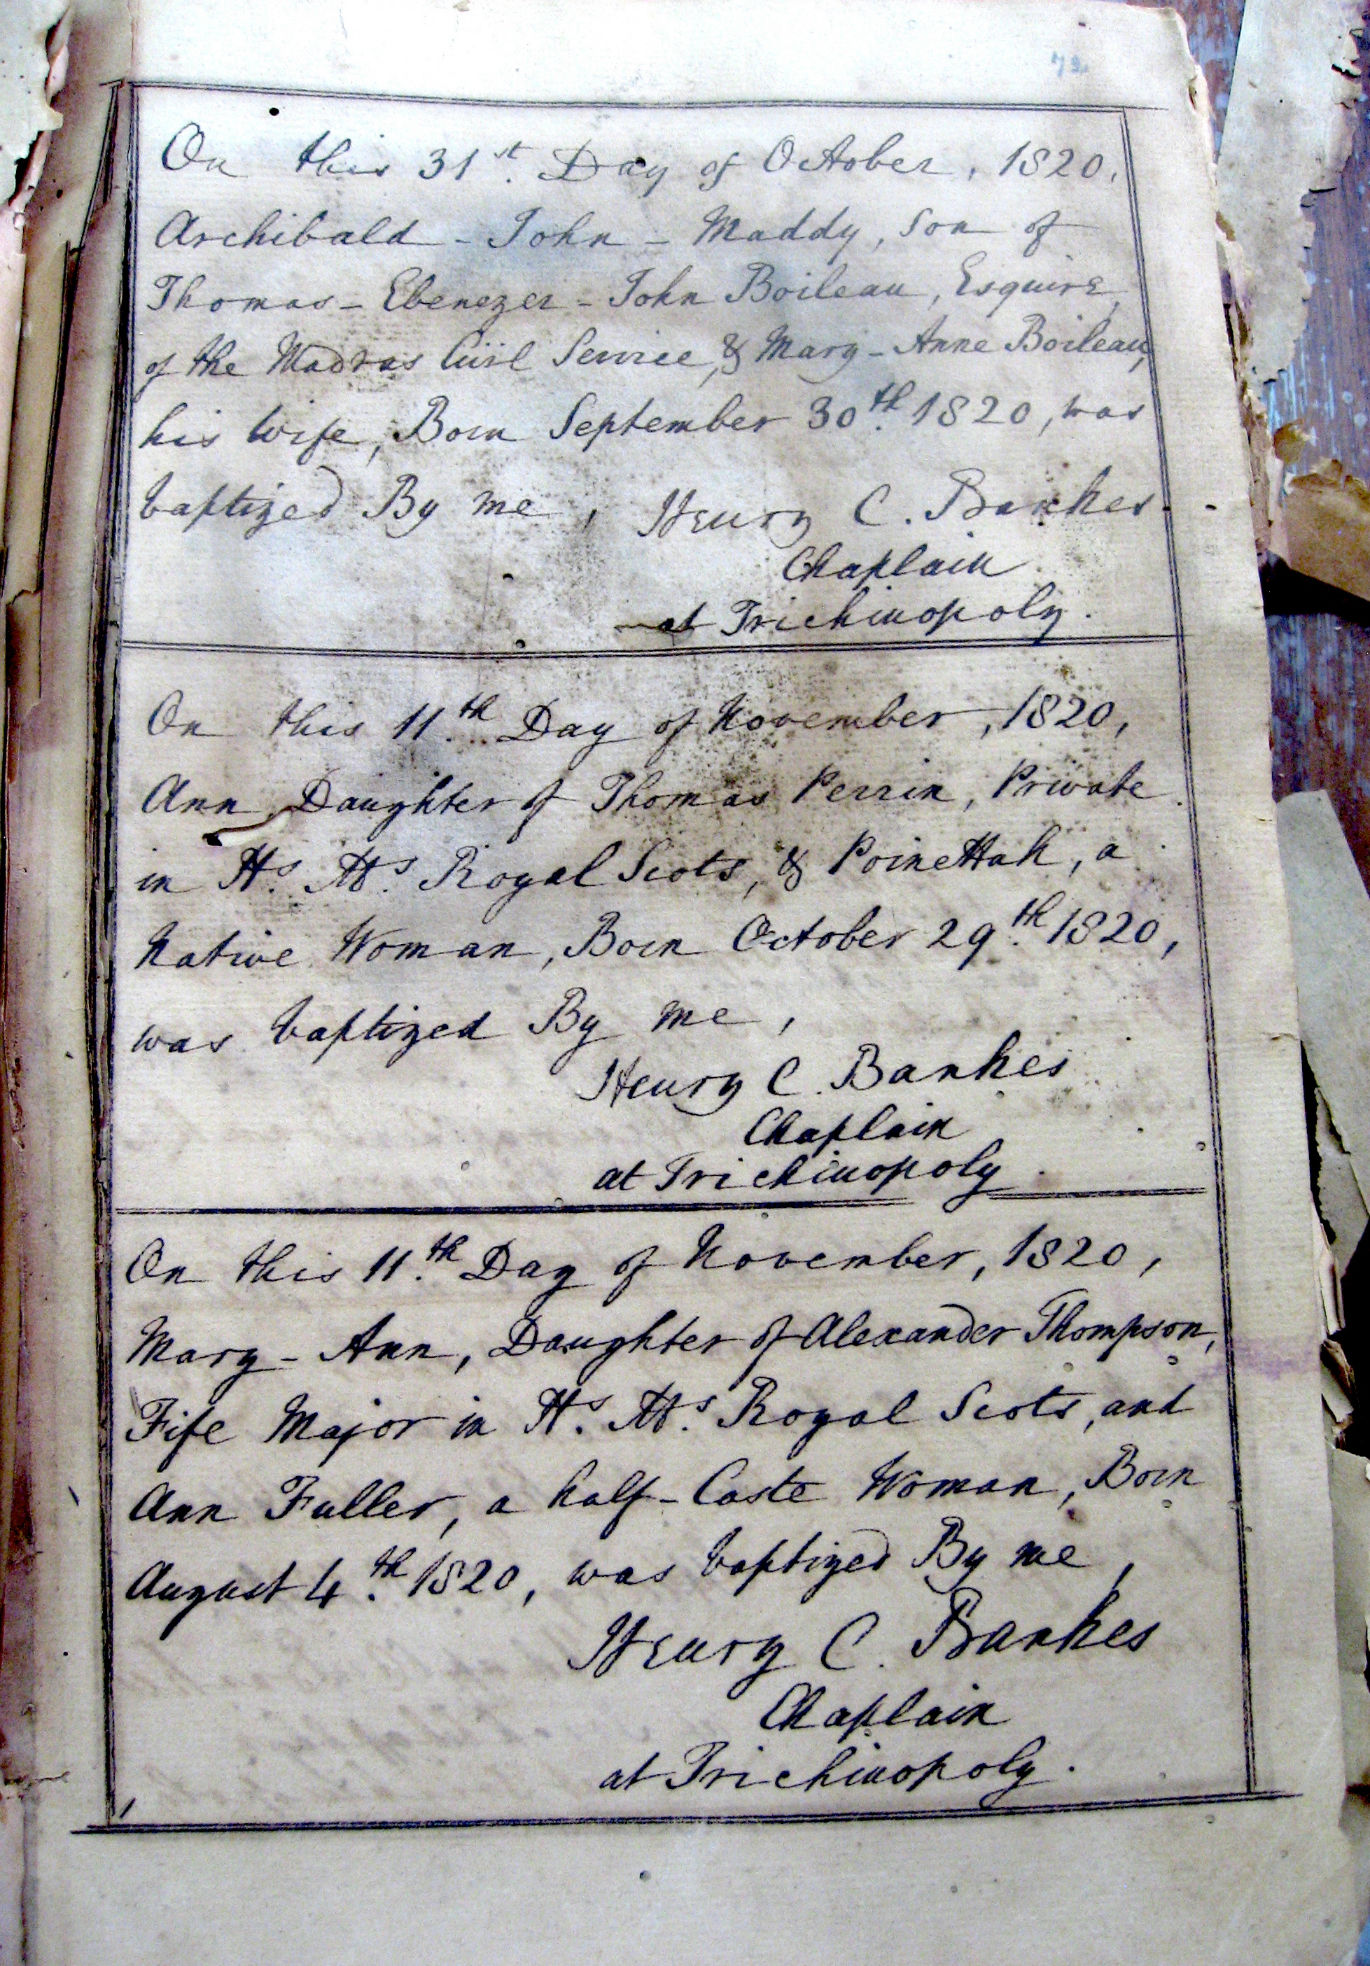 72.
On this 31st. Day of October, 1820,
Archibald - John - Maddy, Son of
Thomas - Ebenezer - John Boileau, Esquire,
of the Madras Civil Service, & Mary - Anne Boileau,
his Wife, Born September 30th. 1820, was
baptized By me, Henry C. Bankes.
Chaplain
at Trichinopoly.
On this 11th. Day of November, 1820,
Ann, Daughter of Thomas Perrin, Private
in Hs. Ms. Royal Scots, & Poinettah, a
Native Woman, Born October 29th. 1820,
was baptized By me,
Henry C. Bankes
Chaplain
at Trichinopoly.
On this 11th. Day of November, 1820,
Mary - Ann, Daughter of Alexander Thompson,
Fife Major in Hs. Ms. Royal Scots, and
Ann Fuller, a half - Caste Woman, Born
August 4th. 1820, was baptized By me,
Henry C. Bankes
Chaplain
at Trichinopoly.